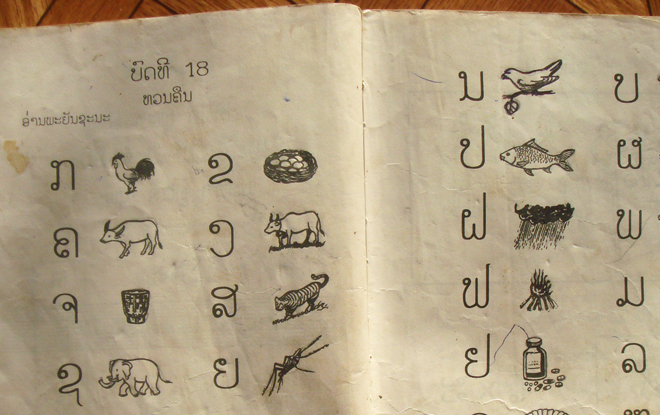 ບົດທີ 18
ທວນຄືນ
ອ່ານພະຍັນຊະນະ
ກ ຂ
ຄ ງ
ຈ ສ
ຊ ຍ
ນ ບ
ປ ຜ
ຝ ພ
ຟ ມ
ຢ ລ